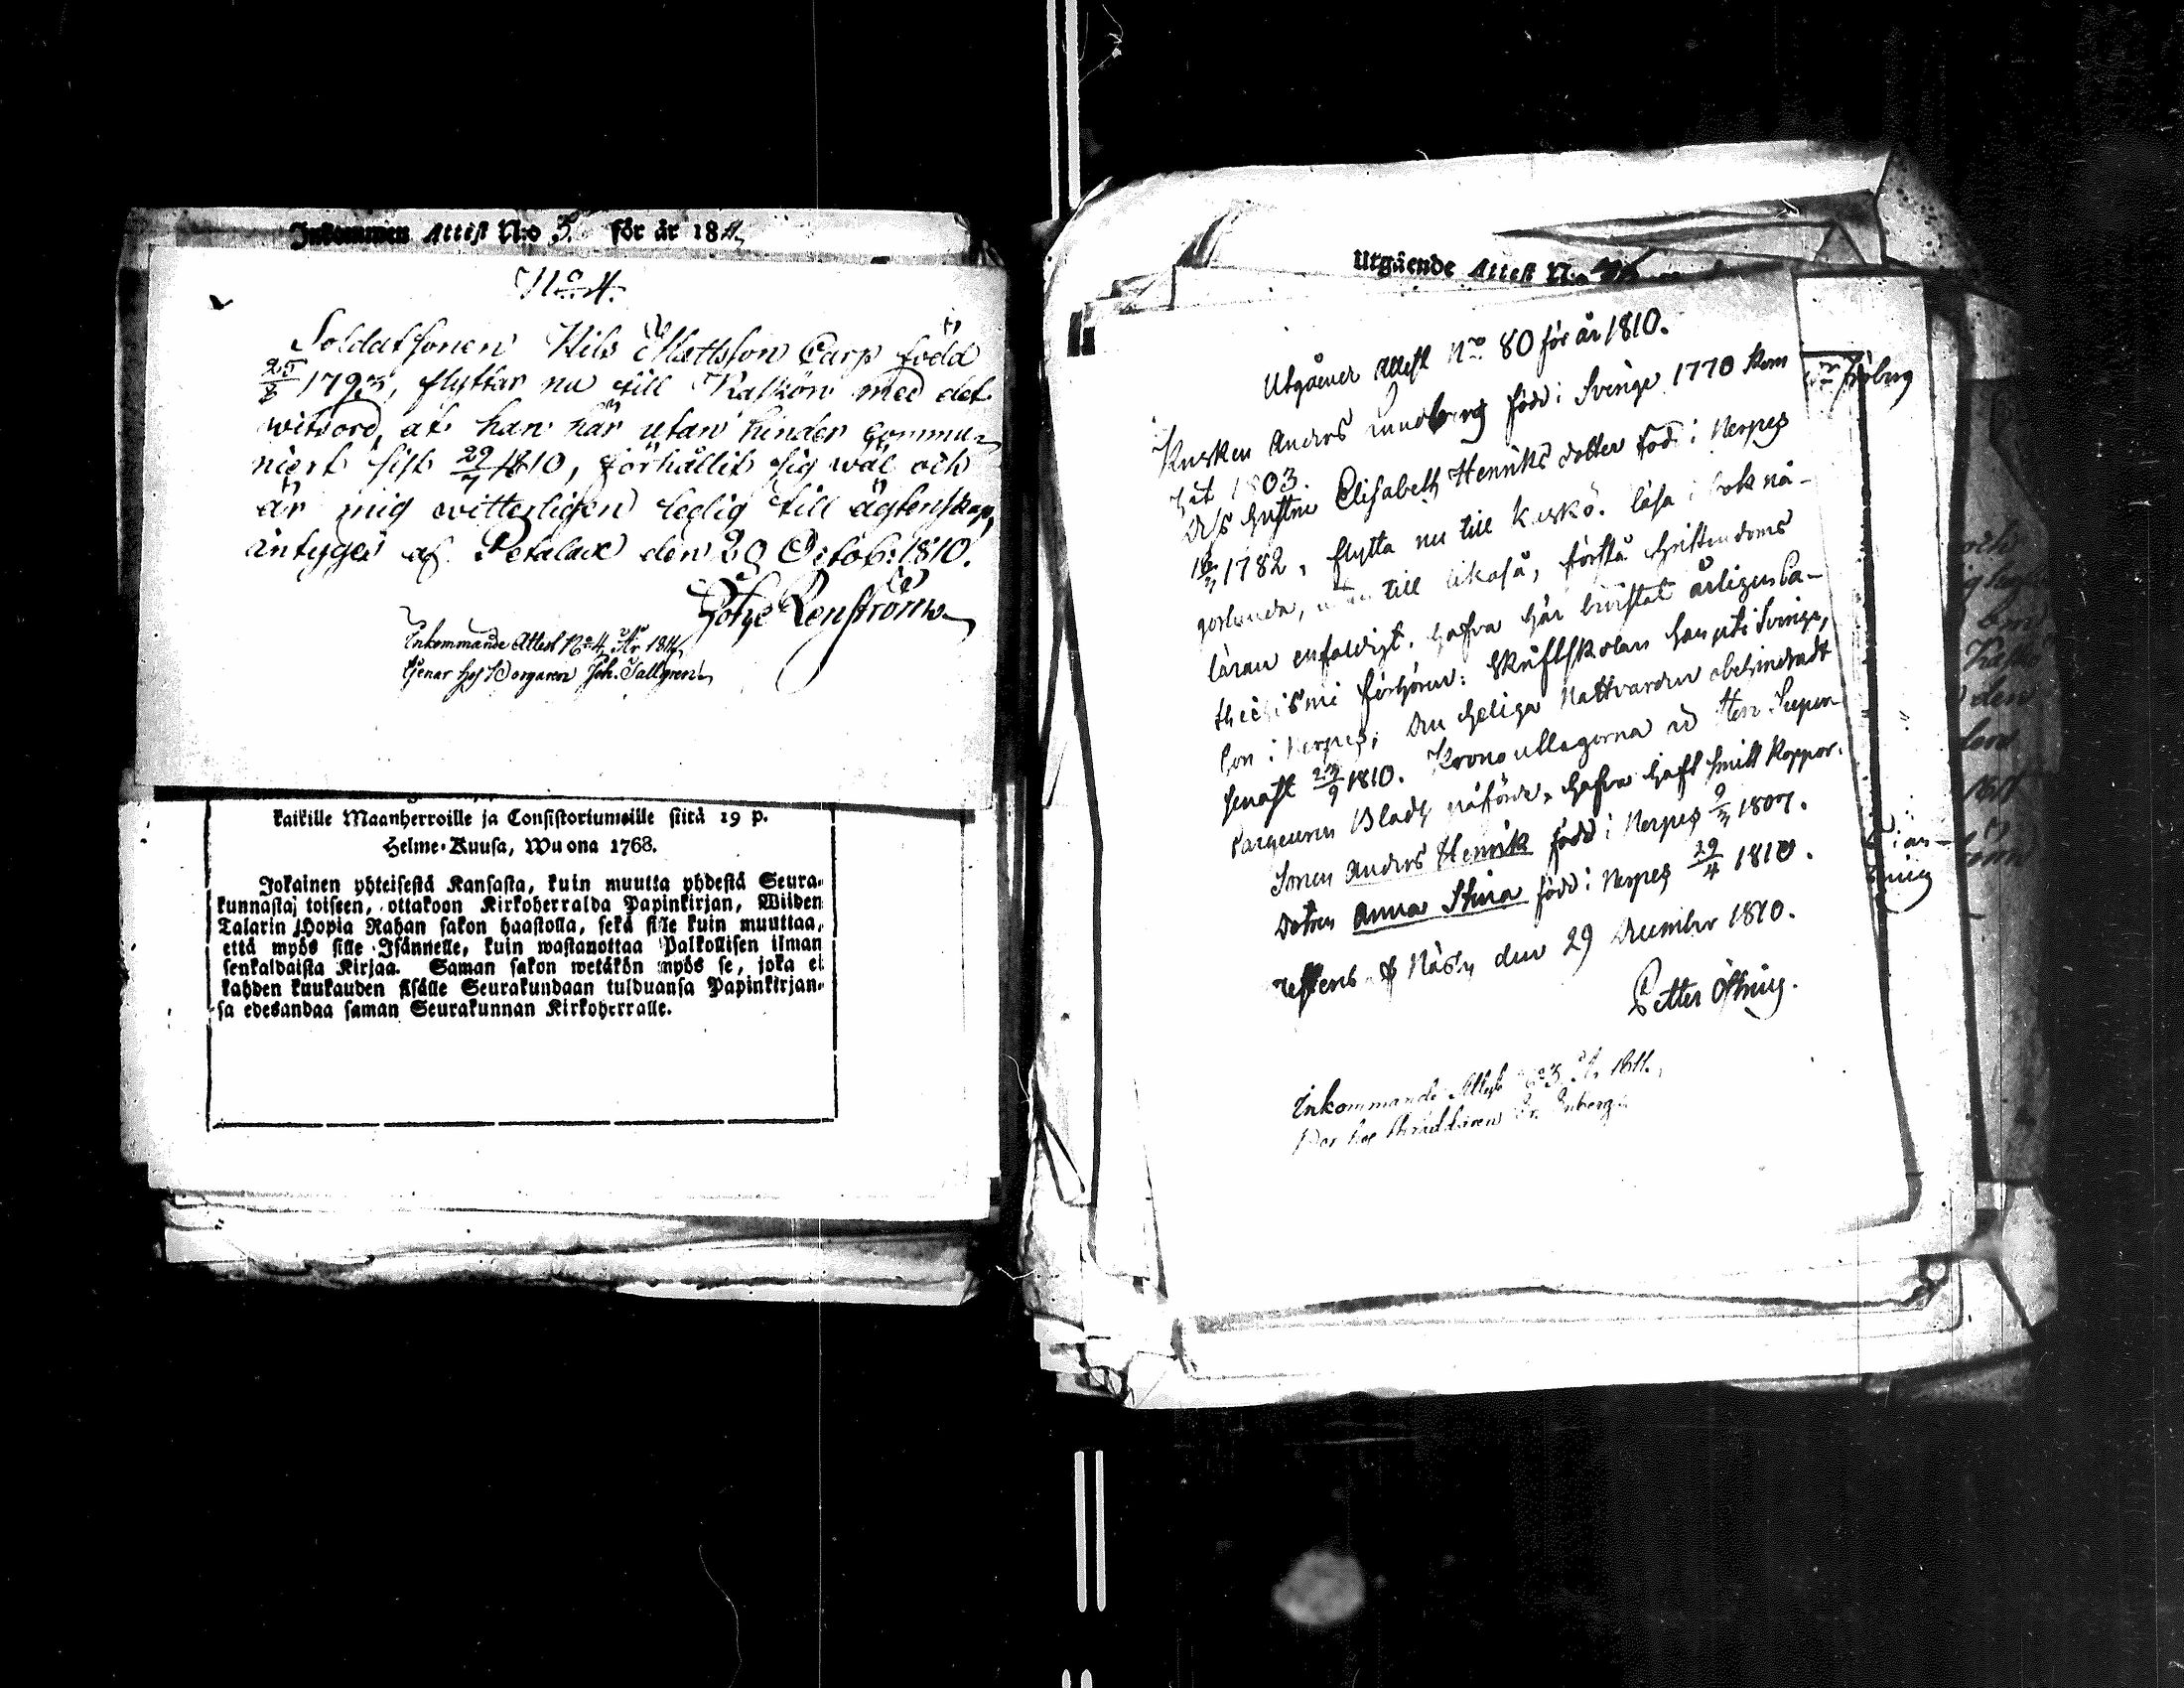 Inkommen Attest N:o 5. för år 1811
No 4.
Soldatsonen Nils Mattsson Carp född
25/3 1793, flyttar nu till Kaskön med det
witsord, at han här utan hinder commu-
niert sist 29/7 1810, förhållit sig wäl och
är mig witterligen ledig till ägtenskap,
äntyges af Petalax den 29 Octob: 1810.
Götze Renström
Inkommande Attest No 4, År 1811,
tjenar hos Borgaren Joh. Tallgren
kaikille Maanherroille ja Consistoriumeille siitä 19 p.
Helme-Kuusa, Wuona 1768.
Jokainen yhteisestä Kansasta, kuin muutta yhdestä Seura-
kunnasta toiseen, ottakoon Kirkoherralda Papinkirjan, Wiiden
Talarin Hopia Rahan sakon haastolla, sekä sille kuin muuttaa,
että myös sille Isännelle, kuin wastanottaa Palkollisen ilman
senkaldaista Kirjaa. Saman sakon wetäkön myös se, joka ei
kahden kuukauden sisälle Seurakundaan tulduansa Papinkirjan-
sa edesandaa saman Seurakunnan Kirkoherralle.
Utgående Attest N:o
Utgåener Attest No 80 för år 1810.
Kusken Anders Lundberg född i Sverige 1770 kom
hit 1803.
D/s hustru Elisabeth Henriks dotter född i Nerpes
1782, flytta nu till Kaskö. läsa i bok nå-
gorlunda, till likaså, förstå christendoms
läran enfaldigt. hafva här bivistat årligen Ca-
thechismi förhören: Skriftskolan han uti Sverige,
hon i Nerpes; den heliga Nattvarden obehindradt
senast 23/9 1810. Kronoutlagorna
påförde. hafva haft smitt koppor.
Sonen Anders Henrik född i Nerpes 1807.
Dotren Anna Stina född i Nerpes 29/4 1810.
Näsby den 29 December 1810.
Petter Öhning.
Inkommande Attest No 3 År 1811.